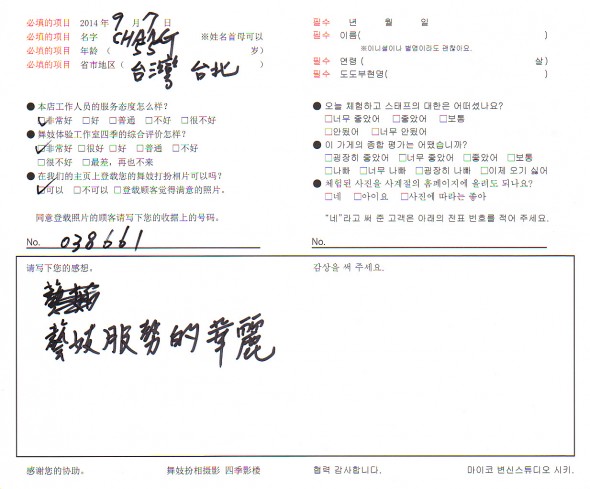 必填的项目 2014 年 9 月 7 日
必填的项目 名字 （ CHANG ※姓名首母可以
必填的项目 年龄 （ 55 岁）
必填的项目 省市地区（ 台灣 台北 ）
●本店工作人员的服务态度怎么样？
☑非常好 □好 □普通 □不好 □很不好
●舞妓体验工作室四季的综合评价怎样？
☑非常好 □很好 □好 □普通 □不好
□很不好 □最差，再也不来
●在我们的主页上登载您的舞妓打扮相片可以吗？
☑可以 □不可以 □登载顾客觉得满意的照片。
同意登载照片的顾客请写下您的收据上的号码。
No. 038661
필수 년 월 일
필수 이름( )
※이니셜이나 별명이라도 괜찮아요.
필수 연령 ( 살)
필수 도도부현명( )
● 오늘 체험하고 스태프의 대한은 어떠셨나요?
□너무 좋았어 □좋았어 □보통
□안됬어 □너무 안됬어
● 이 가게의 종합 평가는 어땠습니까?
□굉장히 좋았어 □너무 좋았어 □좋았어 □보통
□나빠 □너무 나빠 □굉장히 나빠 □이제 오기 싫어
● 체험된 사진을 사계절의 홈페이지에 올려도 되나요?
□네 □아이요 □사진에 따라는 좋아
"네"라고 써 준 고객은 아래의 전표 번호를 적어 주세요.
No.
请写下您的感想。
藝妓服務的華麗
감상을 써 주세요.
感谢您的协助。 舞妓扮相摄影 四季影楼
협력 감사합니다. 마이코 변신스튜디오 시키.